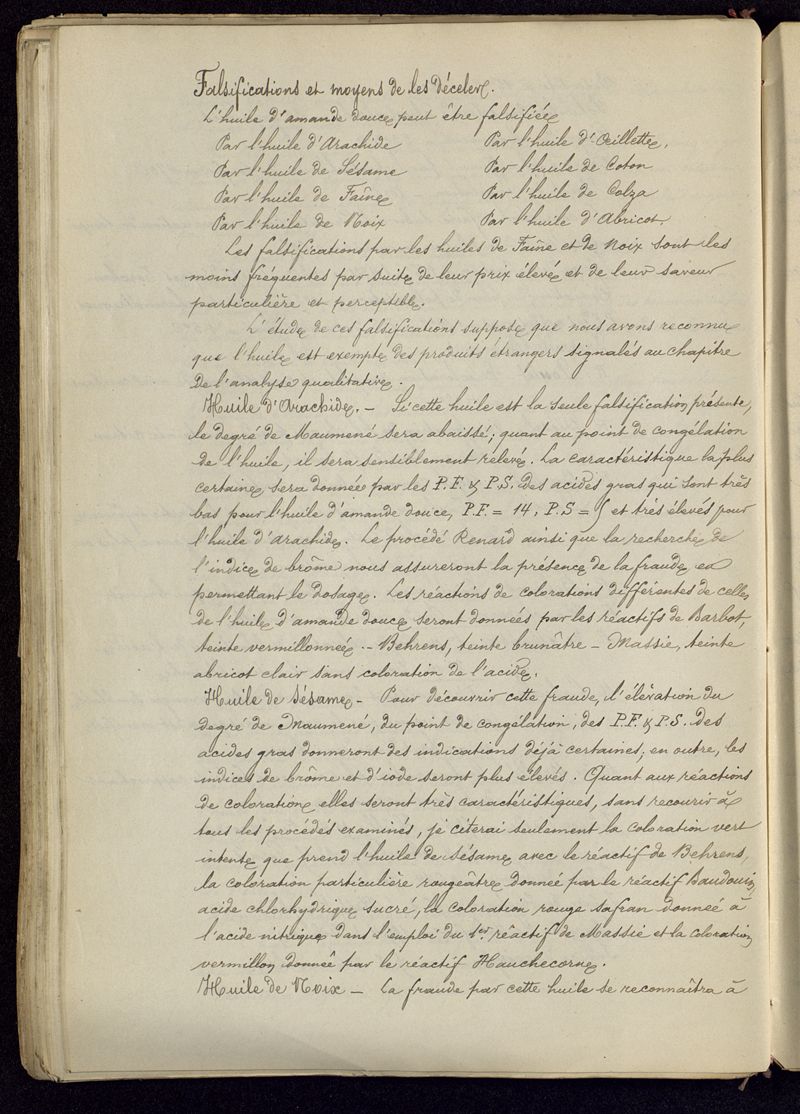 Falsifications et moyens de les déceler.
L'huile d'amande douce peut être falsifiée
Par l'huile d'Arachide Par l'huile d'Œillette,
Par l'huile de Sésame Par l'huile de Coton
Par l'huile de Faîne Par l'huile de Colza
Par l'huile de Noix Par l'huile d'Abricot.
Les falsifications par les huiles de Faîne et de Noix sont les
moins fréquentes par suite de leur prix élevé et de leur saveur
particulière et perceptible.
L'étude de ces falsifications suppose que nous avons reconnu
que l'huile est exempte des produits étrangers signalés au chapitre
de l'analyse qualitative.
Huile d'Arachide. - Si cette huile est la seule falsification présente,
le degré de Maumené sera abaissé; quant au point de congélation
de l'huile, il sera sensiblement relevé. La caractéristique la plus
certaine sera donnée par les P.F. & P.S. des acides gras qui sont très
bas pour l'huile d'amande douce, P.F. = 14, P.S = 5 et très élevés pour
l'huile d'arachide. Le procédé Renard ainsi que la recherche de
l'indice de brôme nous assureront la présence de la fraude en
permettant le dosage. Les réactions de colorations différentes de celle
de l'huile d'amande douce seront données par les réactifs de Barbot,
teinte vermillonnée. - Behrens, teinte brunâtre - Massie, teinte
abricot clair sans coloration de l'acide.
Huile de Sésame - Pour découvrir cette fraude, l'élévation du
degré de Maumené, du point de congélation, des P.F. & P.S. des
acides gras donneront des indications déjà certaines; en outre, les
indices de brôme et d'iode seront plus élevés. Quant aux réactions
de coloration elles seront très caractéristiques, sans recourir à
tous les procédés examinés, je citerai seulement la coloration vert
intente que prend l'huile de sésame avec le réactif de Behrens,
la coloration particulière rougeâtre donnée par le réactif Baudouin,
acide chlorhydrique sucré, la coloration rouge safran donneé à
l'acide nitrique dans l'emploi du 1er réactif de Massie et la coloration
vermillon donnée par le réactif Hauchecorne.
Huile de Noix - La fraude par cette huile se reconnaîtra à